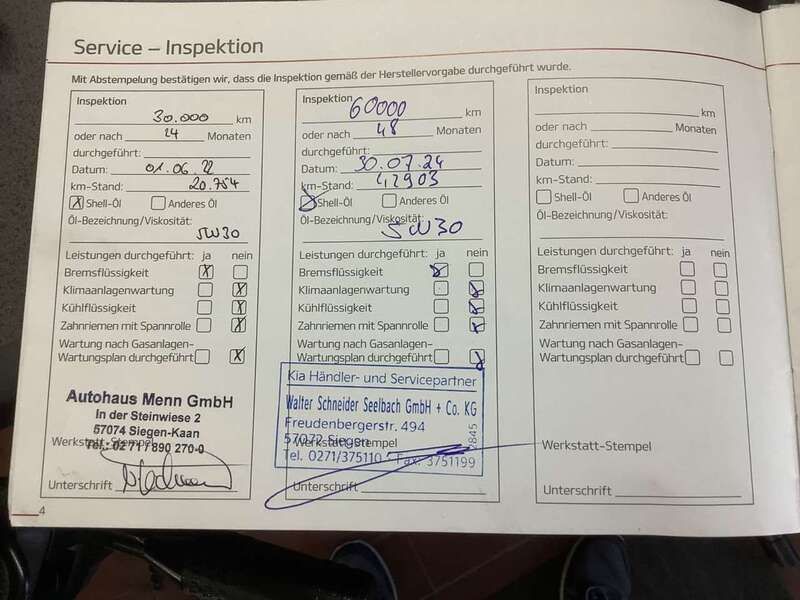 Service – Inspektion
Mit Abstempelung bestätigen wir, dass die Inspektion gemäß der Herstellervorgabe durchgeführt wurde.
Inspektion
30.000 km
oder nach 24 Monaten
durchgeführt:
Datum: 01.06.22
km-Stand: 20.754
X Shell-Öl Anderes Öl
Öl-Bezeichnung/Viskosität:
5W30
Leistungen durchgeführt: ja nein
Bremsflüssigkeit X
Klimaanlagenwartung X
Kühlflüssigkeit X
Zahnriemen mit Spannrolle X
Wartung nach Gasanlagen-
Wartungsplan durchgeführt X
Autohaus Menn GmbH
In der Steinwiese 2
57074 Siegen-Kaan
Werkstatt-Stempel
Tel.: 02 71 / 890 270-0
Unterschrift
4
Inspektion 60000 km
oder nach 48 Monaten
durchgeführt:
Datum: 30.07.24
km-Stand: 42903
X Shell-Öl Anderes Öl
Öl-Bezeichnung/Viskosität:
5W30
Leistungen durchgeführt: ja nein
Bremsflüssigkeit X
Klimaanlagenwartung X
Kühlflüssigkeit X
Zahnriemen mit Spannrolle X
Wartung nach Gasanlagen-
Wartungsplan durchgeführt X
Kia Händler- und Servicepartner
Walter Schneider Seelbach GmbH + Co. KG
Freudenbergerstr. 494
57072 Siegen
Werkstatt-Stempel
Tel. 0271/375110 Fax: 3751199
2845
Unterschrift
Inspektion
km
oder nach Monaten
durchgeführt:
Datum:
km-Stand:
Shell-Öl Anderes Öl
Öl-Bezeichnung/Viskosität:
Leistungen durchgeführt: ja nein
Bremsflüssigkeit
Klimaanlagenwartung
Kühlflüssigkeit
Zahnriemen mit Spannrolle
Wartung nach Gasanlagen-
Wartungsplan durchgeführt
Werkstatt-Stempel
Unterschrift